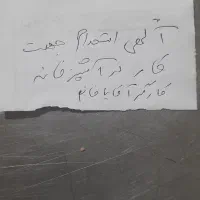 آگهی استخدام جهت
کار در آشپزخانه
کارگر آقا یا خانم